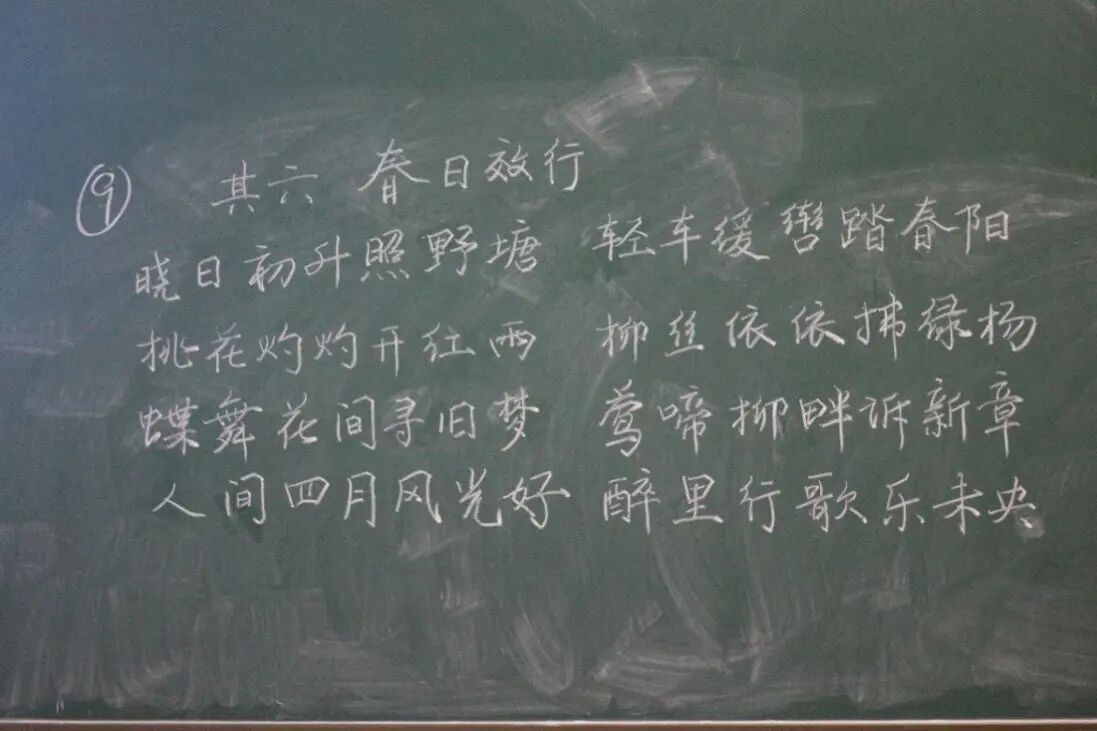 ⑨ 其六 春日效行
晓日初升照野塘 轻车缓辔踏春阳
桃花灼灼开红雨 柳丝依依拂绿杨
蝶舞花间寻旧梦 莺啼柳畔诉新章
人间四月风光好 醉里行歌乐未央